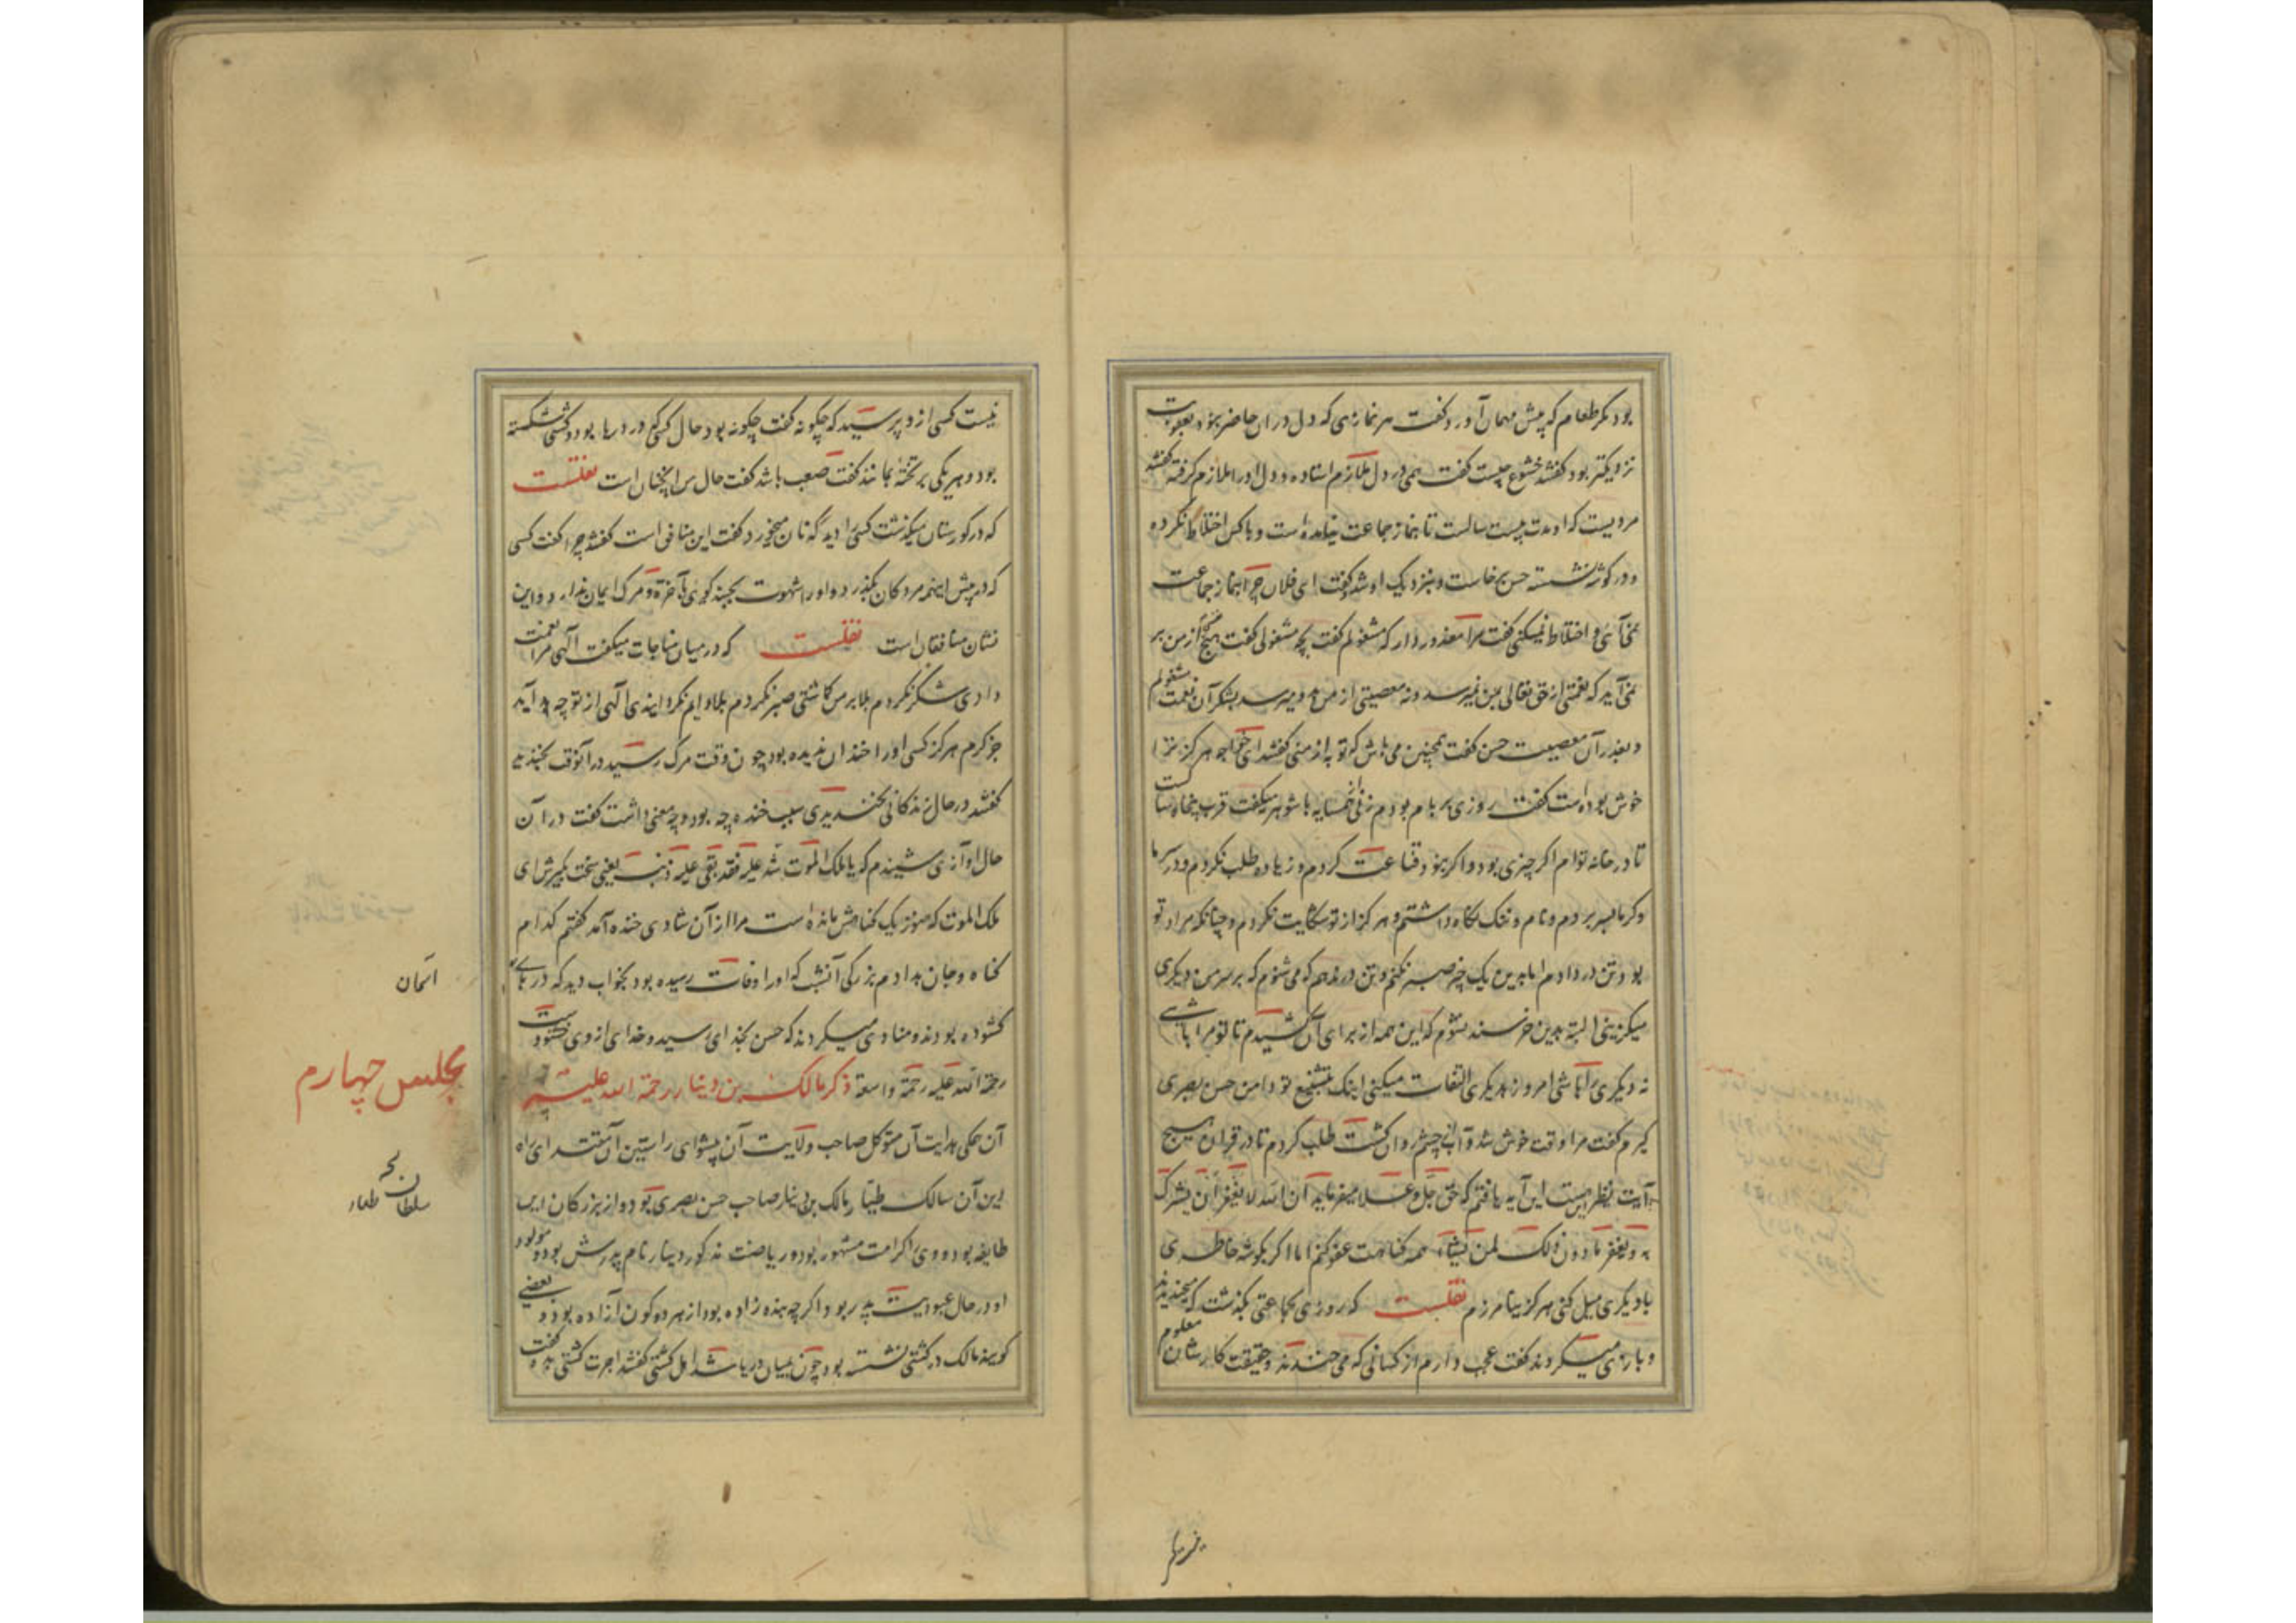 بود مکر طعام که پیش مهمان آورد و کفت هر نمازی که دل در ان حاضر نبود بعقوبت
نزدیکتر بود کفتند خشوع چیست کفت بیمی در دل ملازم استاده و دل او را ملازم کرفته کفتند
مردیست که او مدت بیست سالست تا بنماز جماعت نیامده است و با کس اختلاط نکرده
و در کوشه نشسته حسن برخاست و بنزدیک او شد و کفت ای فلان چرا بنماز جماعت
نمی آئی و اختلاط نمیکنی کفت مرا معذور دار که مشغولم کفت بچه مشغولی کفت هیچ از من بر
نمی آید که نعمتی از حق تعالی بمن نمیرسد و نه معصیتی از من بدو میرسد بشکر آن نعمت مشغولم
و بعذر آن معصیت حسن کفت همچنین می باش که تو به از منی کفتند ای خواجه هرکز ترا
خوش بوده است کفت روزی بر بام بودم زنی همسایه با شوهر میکفت قرب پنجاه سالست
تا در خانه توام اکر چیزی بود و اکر نبود قناعت کردم و زیاده طلب نکردم و در سرما
و کرما بسر بردم و نام و ننک نکاه داشتم و هرکز از تو شکایت نکردم و چنانکه مراد تو
بود تن در دادم اما برین یک چیز صبر نکنم و تن در ندهم که می شنوم که بر سر من دیکری
میکزینی البته بدین خرسند نشوم که این همه از برای آن کشیدم تا تو مرا باشی
نه دیکری را باشی امروز بدیکری التفات میکنی اینک بتشنیع تو دامن حسن بصری
کیرم کفت مرا وقت خوش شد و آب از چشم روان کشت طلب کردم تا در قران هیچ
آیت نظیر اینست این آیه یافتم که حق جل و علا میفرماید ان الله لا یغفر ان یشرک
به و یغفر ما دون ذلک لمن یشاء همه کناهت عفو کنم اما اکر بکوشه خاطری
با دیکری میل کنی هرکز نیامرزم نقلست که روزی بجماعتی بکذشت که میخندیدند
و بازی میکردند کفت عجب دارم از کسانی که می خندند و حقیقت کار شان معلوم
نیست کسی از و پرسید که چکونه کفت چکونه بود حال کسی که در دریا بود و کشتی شکسته
بود و هر یکی بر تخته بمانند کفت صعب باشد کفت حال من انچنان است نقلست
که در کورستان میکذشت کسی را دید که نان میخورد کفت این منافق است کفتند چرا کفت کسی
که در پیش اینهمه مردکان بکذرد و او را شهوت بجنبد کوئی بآخرة و مرک ایمان ندارد و این
نشان منافقان است نقلست که در میان مناجات میکفت الهی مرا نعمت
دادی شکر نکردم بلا بر من کماشتی صبر نکردم بلا دایم نکردانیدی الهی از تو چه آید
جز کرم هرکز کسی او را خندان ندیده بود چون وقت مرک رسید در آنوقت بخندید
کفتند در حال زندکانی نخندیدی سبب خنده چه بود و چه معنی داشت کفت در آن
حال آوازی شنیدم که یا ملک الموت شد علیه فقد بقی علیه ذنب یعنی سخت بکیرش ای
ملک الموت که هنوز یک کناهش مانده است مرا از آن شادی خنده آمد کفتم کدام
کناه و جان بدادم بزرکی آنشب که او را وفات رسیده بود بخواب دید که درهای
کشوده بودند و منادی میکردند که حسن بخدای رسید و خدای از وی خشنود است
رحمة الله علیه رحمة واسعة ذکر مالک بن دینار رحمة الله علیه
آن متوکل صاحب ولایت آن پیشوای راستین آن مقتدای راه
دین آن سالک طیار مالک بن دینار صاحب حسن بصری بود و از بزرکان این
طایفه بود و وی بکرامت مشهور بود و بریاضت مذکور دینار نام پدرش بود و مولود
او در حال عبودیت پدر بود اکرچه بنده زاده بود از هر دو کون آزاده بود و بعضی
کویند مالک در کشتی نشسته بود چون بمیان دریا شد اهل کشتی کفتند اجرت کشتی بده کفت
آسمان
مجلس چهارم
سلطان